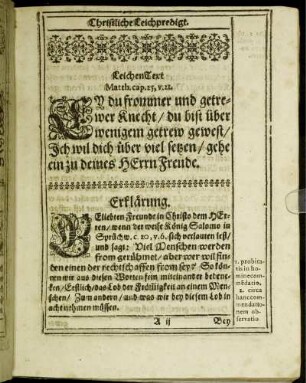 Christliche Leichpredigt.
LeichenText
Matth. cap. 25, v. 21.
EY du frommer und getre-
wer Knecht / du bist über
wenigem getrew gewest /
Ich wil dich über viel setzen / gehe
ein zu deines HErrn Freude.
Erklärung.
GEliebten Freunde in Christo dem HEr-
ren / wenn der weise König Salomo in
Sprüchw. c 20, v. 6. sich verlauten lest /
und sagt: Viel Menschen werden
from gerühmet / aber wer wil fin-
den einen der rechtschaffen from sey? So kön-
nen wir aus diesen Worten fein miteinander beden-
cken / Erstlich / das Lob der Frömigkeit an einem Men-
schen / Zum andern / auch was wir bey diesem Lob in
acht nehmen müssen.
1. probita-
tis in ho-
mine com-
mēdatio,
2. circa
hanc com-
mendatio-
nem ob-
servatio
A ij
Bey